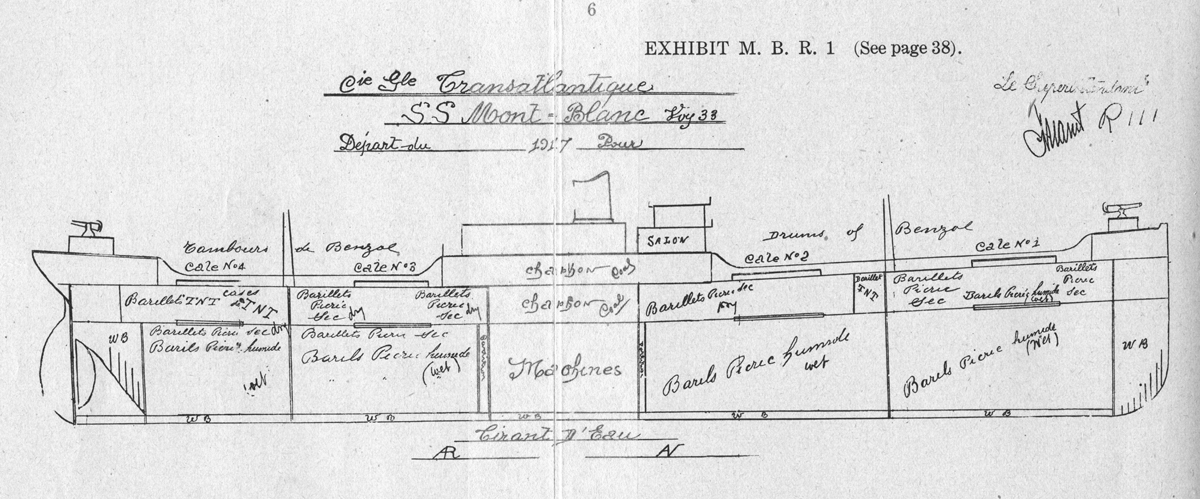 6
EXHIBIT M. B. R. 1 (See page 38).
Cie Gle Transatlantique
SS Mont-Blanc Voy 33
Départ du 1917 Pour
Tambours de Benzol
Drums of Benzol
SALON
Cale No 4
Cale No 3
Cale No 2
Cale No 1
Charbon Coal
Charbon Coal
Barillet TNT
cases TNT
Barillets
Picric
Sec dry
Barillets
Picric
Sec dry
Barillets Picric Sec
Dry
Barillet
TNT
Barillets
Picric
Sec
Barillets
Picric
Sec
Barils Picric humide
(wet)
WB
Barillets Picric Sec dry
Barils Picric humide
wet
Barillets Picric Sec
Barils Picric humide
(wet)
Machines
Barils Picric humide
wet
Barils Picric humide
(Wet)
WB
WB
WB
WB
WB
WB
Tirant D'Eau
AR
AV